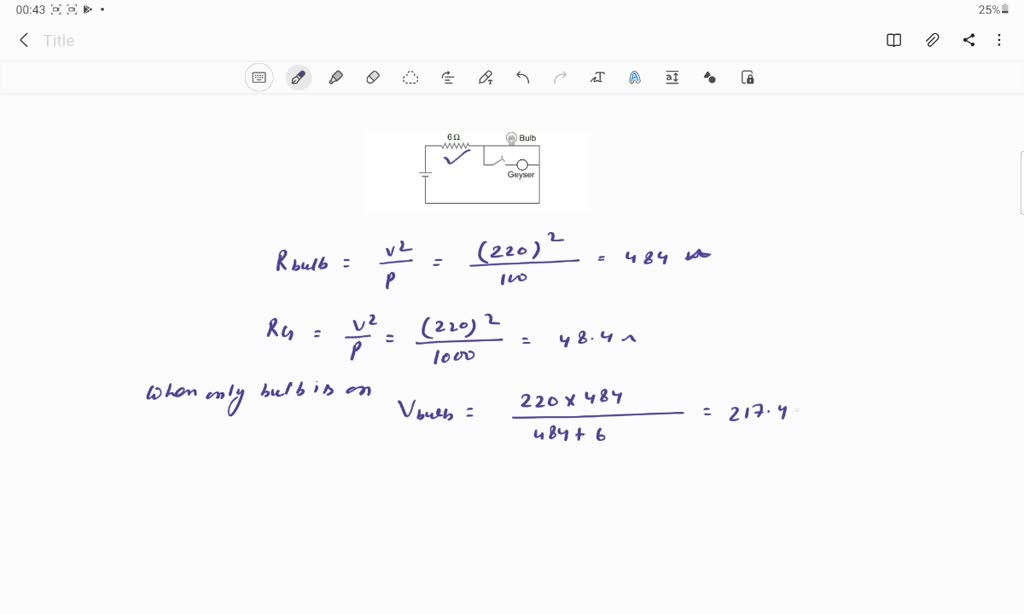 00:43
25%
Title
6Ω
Bulb
Geyser
Rbulb = V²/P = (220)²/100 = 484 Ω
RG = V²/P = (220)²/1000 = 48.4 Ω
When only bulb is on
Vbulb = 220 × 484 / 484 + 6 = 217.4